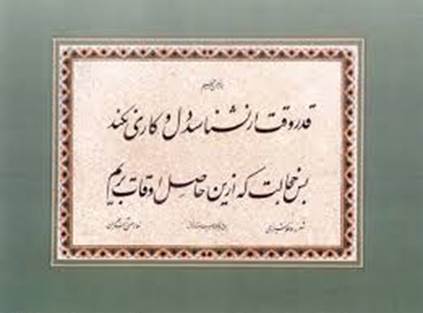 قدر وقت ار نشناسد دل و کاری نکند
بس خجالت که ازین حاصل اوقات بریم